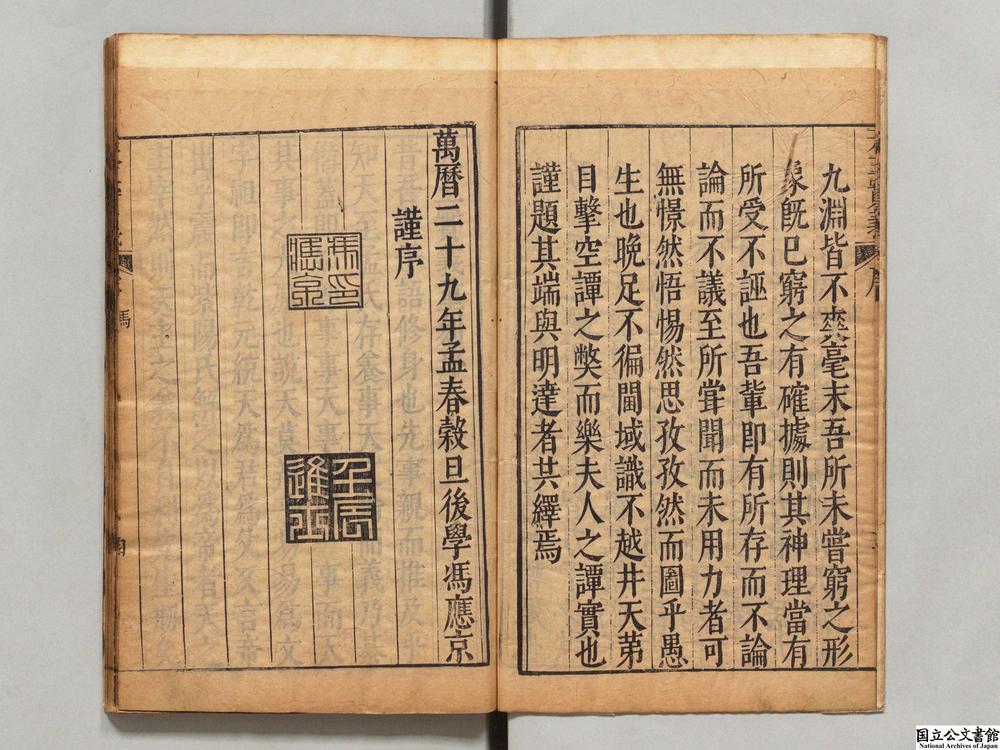 九淵皆不爽毫末吾所未嘗窮之形
象既已窮之有確據則其神理當有
所受不誣也吾輩即有所存而不論
論而不議至所嘗聞而未用力者可
無憬然悟惕然思孜孜然而圖乎愚
生也晚足不徧閫域識不越井天第
目擊空譚之獘而樂夫人之譚實也
謹題其端與明達者共繹焉
序
萬曆二十九年孟春穀旦後學馮應京
謹序
壬辰
進士
馮
国立公文書館
National Archives of Japan